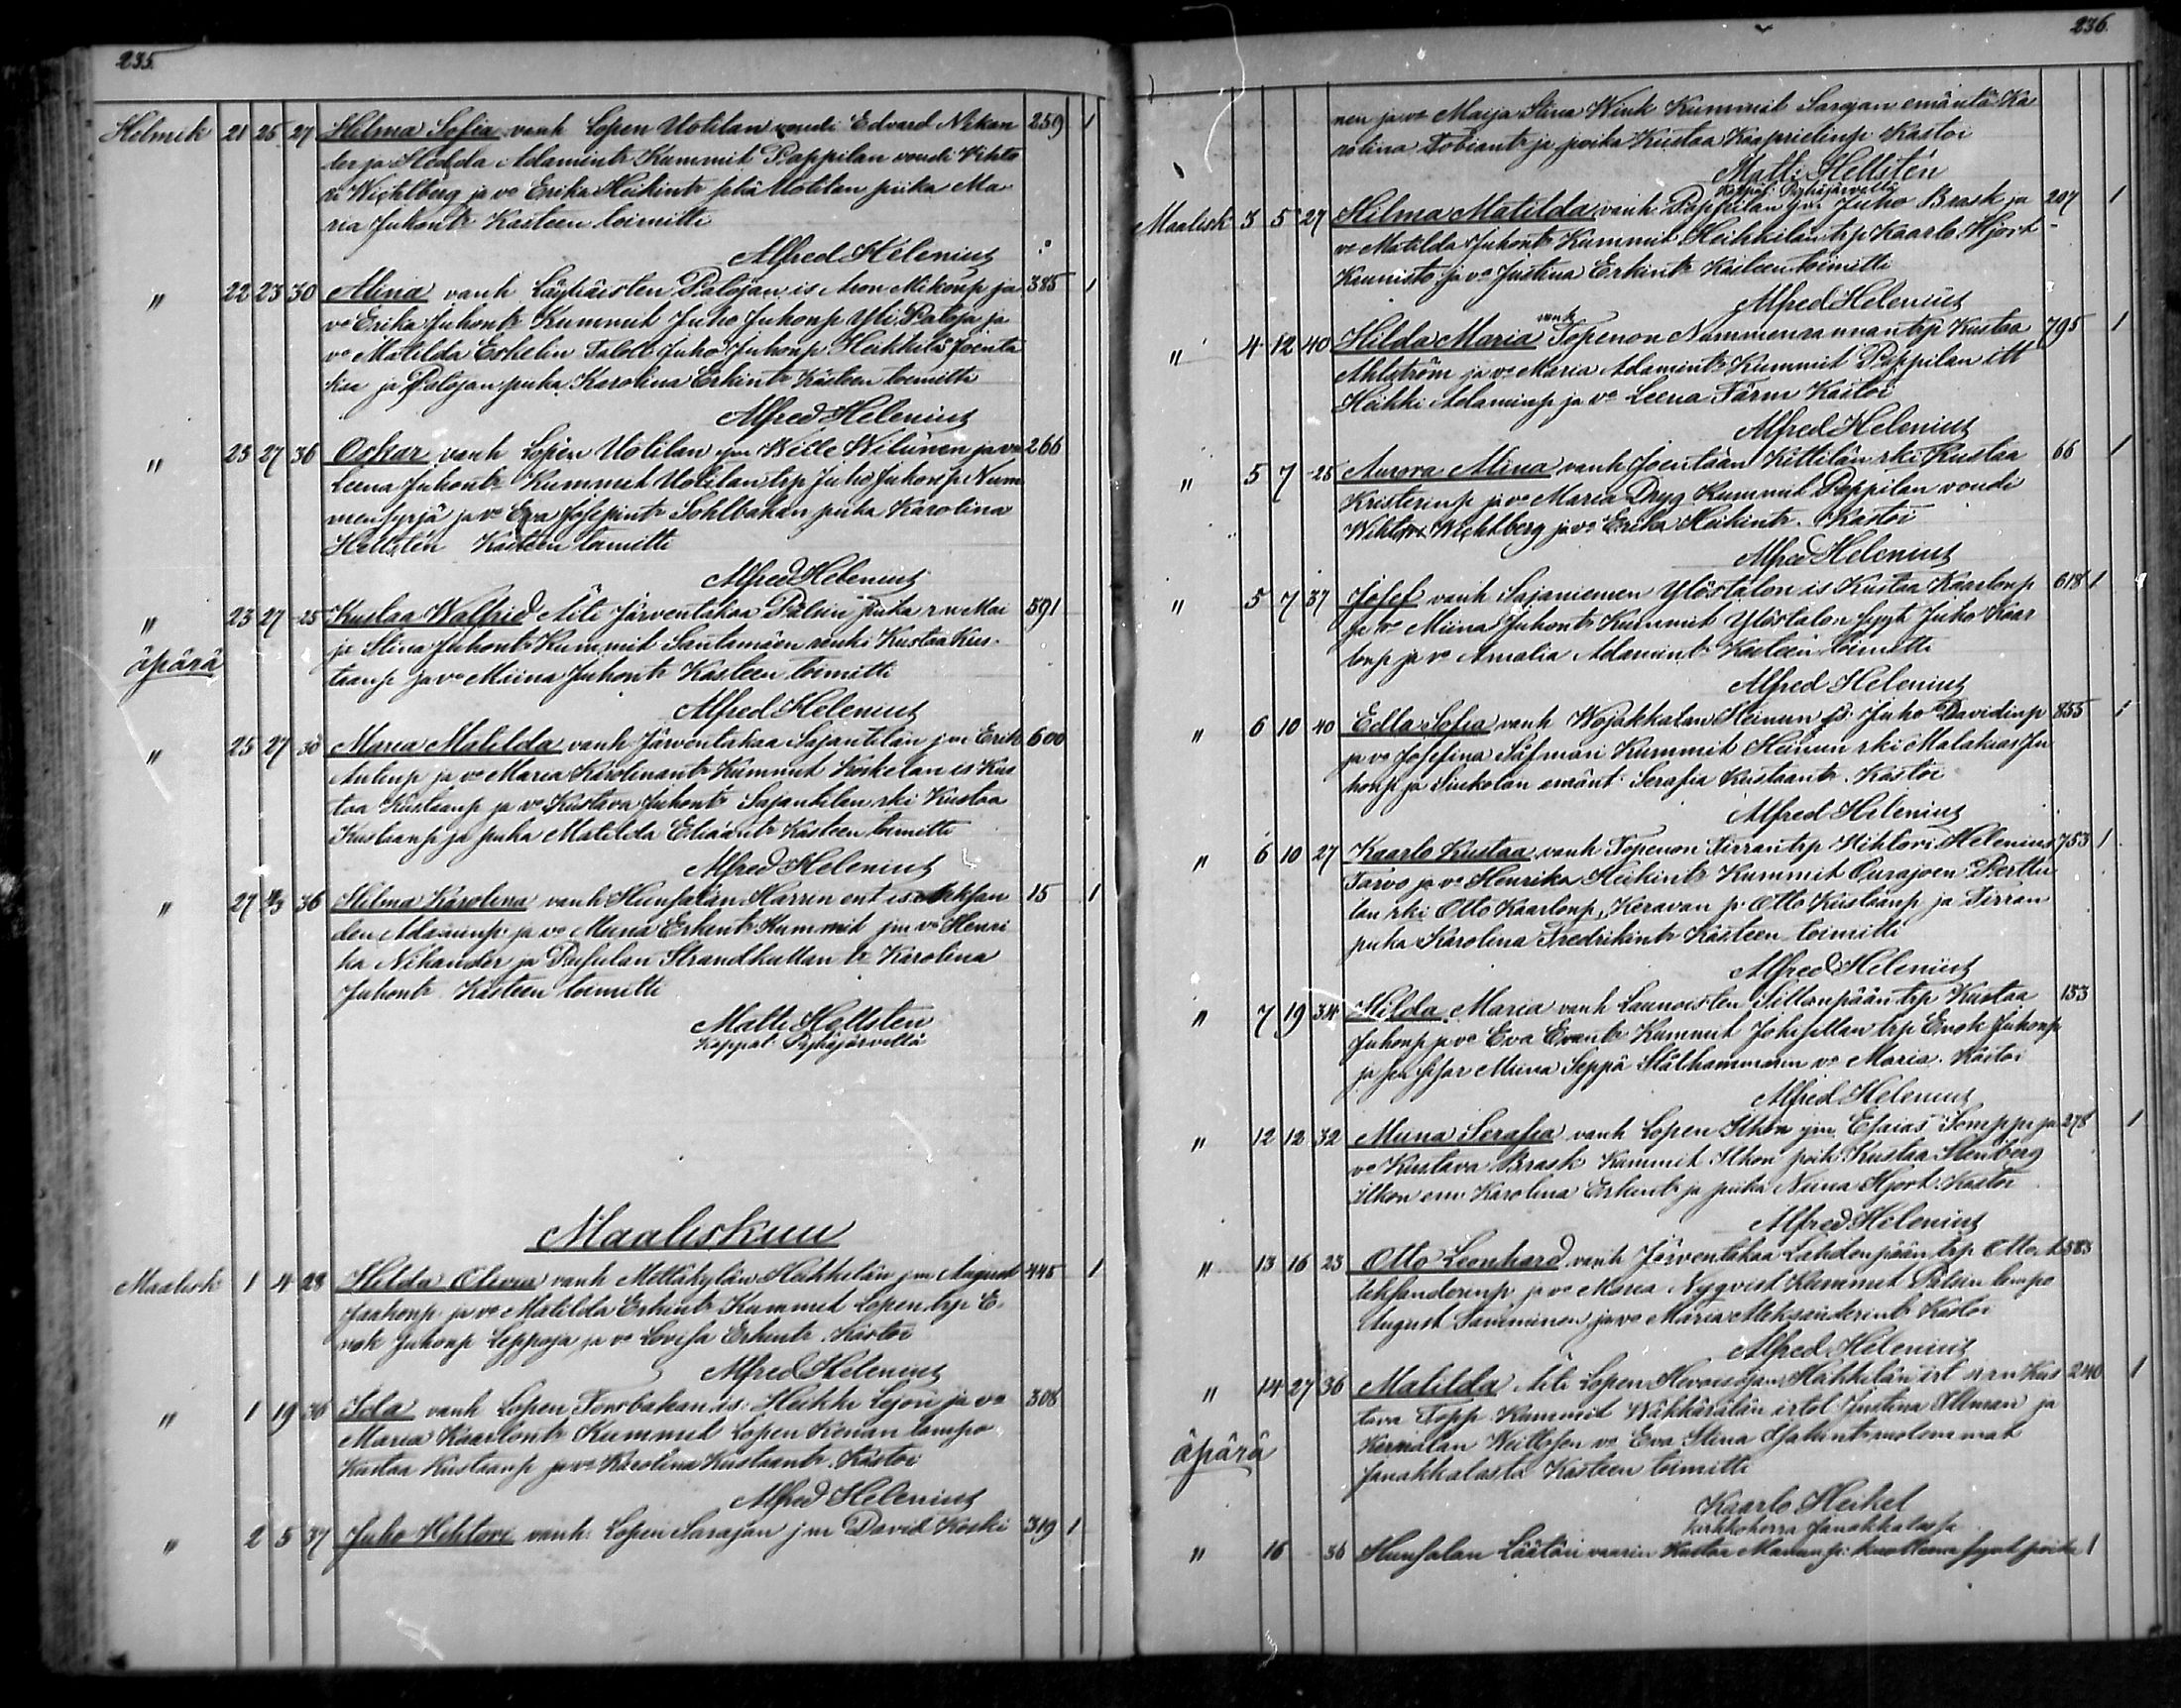 235.
Helmik 21 25 27 Hilma Sofia vanh Lopen Uotilan voudi Edvard Nikan 259 1
der ja Hedda Adamintr Kummit Pappilan voudi Vihto
ri Wichlberg ja vo Erika Heikintr sekä Uotilan piika Ma
ria Juhontr Kasteen toimitti
Alfred Helenius
" 22 23 30 Alina vanh Läyliäisten Palojan is Aron Mikonp ja 385 1
vo Erika Juhontr Kummit Juho Juhonp Yli Paloja ja
vo Matilda Eskelin Talolt Juho Juhonp Heikkilä Joenta
kaa ja Palojan piika Karolina Erkintr Kasteen toimitti
Alfred Helenius
" 23 27 36 Oskar vanh Lopen Uotilan jm Wille Wiliinen ja vo 266
Leena Juhontr Kummit Uotilan trp Juho Juhonp Num
mensyrjä ja vo Eva Josepintr Sohlbakan piika Karolina
Hellstén Kasteen toimitti
Alfred Helenius
" 23 27 25 Kustaa Walfrid Äiti Järventakaa Pälsin piika rn Mai 591
äpärä ja Stina Juhontr Kummit Santamäen renki Kustaa Kus
taanp ja vo Miina Juhontr Kasteen toimitti
Alfred Helenius
" 25 27 30 Maria Matilda vanh Järventakaa Sajantilan jm Erik 600
Antinp ja vo Maria Karolinantr Kummit Koskelan is Kus
taa Kustaanp ja vo Kustava Juhontr Sajantilan rki Kustaa
Kustaanp ja piika Matilda Eliaantr Kasteen toimitti
Alfred Helenius
" 27 4/3 36 Hilma Karolina vanh Hunsalan Harrin ent is Aleksan 15 1
den Adaminp ja vo Miina Erkintr Kummit jm vo Henri
ka Nikander ja Strandkullan tr Karolina
Juhontr Kasteen toimitti
Matti Hellsten
Kappal: Pyhäjärveltä
Maaliskuu
Maalisk 1 4 28 Hilda Olivia vanh Metsäkylän Heikkilän jm August 445 1
Jaakonp ja vo Matilda Erkintr Kummit Lopen trp E
nok Juhonp Leppoja ja vo Lovisa Erkintr Kastoi
Alfred Helenius
" 1 19 36 Ida vanh Lopen Forsbakan is: Heikki Lejon ja vo 308
Maria Kaarlontr Kummit Lopen Kenan lampo
Kustaa Kustaanp ja vo Karolina Kustaantr Kastoi
Alfred Helenius
" 2 5 37 Juho Vihtori vanh: Lopen Sarajan jm David Koski 319 1
236.
nen ja vo Maija Stina Wink Kummit Sarajan emäntä Ka
rolina Tobiantr ja poika Kustaa Kaaprielinp Kastoi
Matti Hellstén
Kappal: Pyhäjärveltä
Maalisk 3 5 27 Hilma Matilda vanh Pappilan jm Juho Brask ja 207 1
vo Matilda Juhontr Kummit Heikkilän trp Kaarlo Hjort
Kaunisto ja vo Justina Erkintr Kasteen toimitti
Alfred Helenius
" 4 12 40 Hilda Maria vanh Topenon Nummenrannan trp Kustaa 795 1
Ahlström ja vo Maria Adamintr Kummit Pappilan itt
Heikki Adaminp ja vo Leena Färm Kastoi
Alfred Helenius
" 5 7 25 Aurora Alina vanh Joentaan Kittilän rki Kustaa 66 1
Kristerinp ja vo Maria Dryg Kummit Pappilan voudi
Wihtori Wichlberg ja vo Erika Heikintr. Kastoi
Alfred Helenius
" 5 7 37 Josef vanh Sajaniemen Ylöstalon is Kustaa Kaarlonp 618 1
ja vo Miina Juhontr Kummit Ylöstalon syyt Juho Kaar
lonp ja vo Amalia Adamintr Kasteen toimitti
Alfred Helenius
" 6 10 40 Edla Sofia vanh Wojakkalan Heinun is: Juho Davidinp 855 1
ja vo Josefina Säfman Kummit Heinun rki Malakias Ju
honp ja Siukolan emänt Serafia Kustaantr. Kastoi
Alfred Helenius
" 6 10 27 Kaarlo Kustaa vanh Topenon Tirran trp Vihtori Helenius 753 1
Tarvo ja vo Henrika Heikintr Kummit Ourajoen Perttu
lan rki Otto Kaarlonp, Keravan p: Otto Kustaanp ja Tirran
piika Karolina Fredrikintr Kasteen toimitti
Alfred Helenius
" 7 19 34 Hilda Maria vanh Launoisten Sillanpään trp Kustaa 133
Juhonp ja vo Eva Evantr Kummit trp Enok Juhonp
ja sen sisar Miina Seppä Stålhammarin vo Maria. Kastoi
Alfred Helenius
" 12 12 32 Miina Serafia vanh Lopen Ilkon jm Esaias Somppi ja 278 1
vo Kustava Brask Kummit Ilkon poik Kustaa Stenberg
Ilkon em Karolina Erkintr ja piika Niina Hjort. Kastoi
Alfred Helenius
" 13 16 23 Otto Leonhard vanh Järventakaa Lahdenpään trp Otto A 583
leksanderinp ja vo Maria Nyqvist Kummit Pälsin lampo
August Samminen ja vo Maria Aleksanderintr Kastoi
Alfred Helenius
" 14 27 36 Matilda Äiti Lopen Hevosojan Heikkilän irt n:n Kus 240 1
tava Topp. Kummit Wäkkärälän irtol Justina Allman ja
äpärä Kernalan Weitlofsen vo Eva Stina molemmat
Janakkalasta Kasteen toimitti
Kaarlo Heikel
kirkkoherra Janakkalassa
" 16 36 Hunsalan Läätäri vaarin Kustaa Mananp: kuolleena synt poika 1